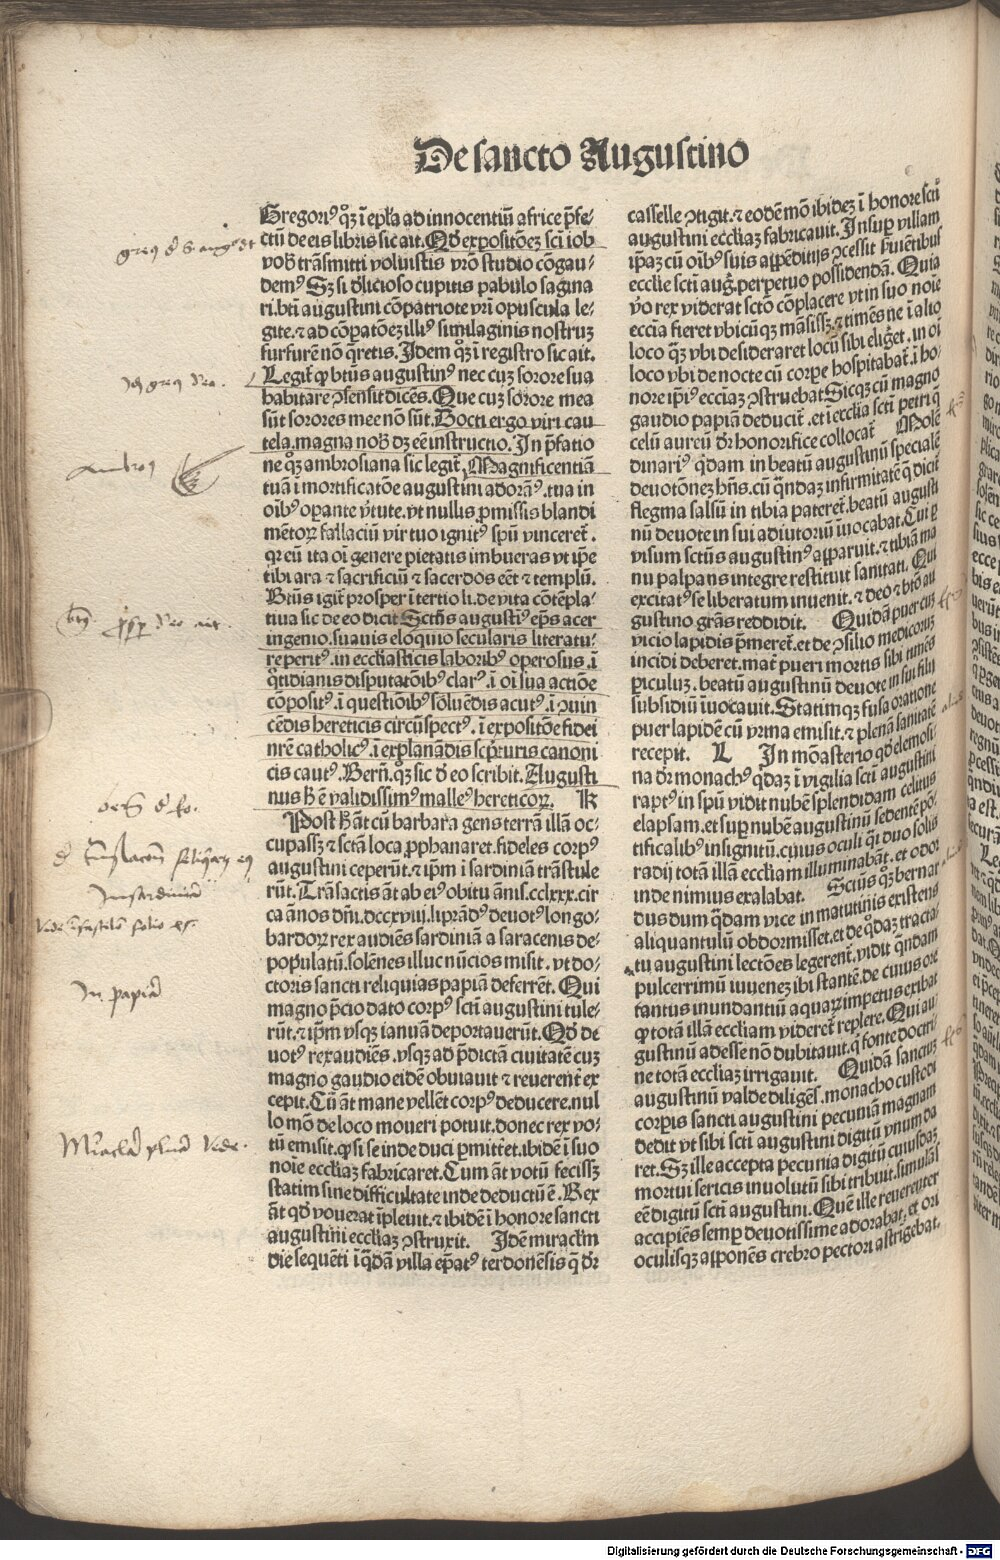 De sancto Augustino
Gregori⁹ qͦꝫ ī epl̄a ad innocentiū africe p̄fe⸗
ctū de eis libris sic ait. Qd̓ expositōeꝫ sci iob
vob̓ trāsmitti voluistis vr̄o studio cōgau⸗
dem⁹ Sꝫ si d̓licioso cupitis pabulo sagina
ri. bt̄i augustini cōpatriote vr̄i opuscula le⸗
gite. ⁊ ad cōpatōeꝫ illi⁹ similaginis nostruꝫ
furfurē nō q̄retis. Idem qͦꝫ ī registro sic ait.
Legit̄ ꝙ bt̄us augustin⁹ nec cuꝫ sorore sua
habitare ꝯsensit dicēs. Que cuꝫ sorore mea
sūt sorores mee nō sūt. Docti ergo viri cau
tela. magna nob̓ dꝫ eē instructio. In p̄fatio
ne qͦꝫ ambrosiana sic legit̄. Magnificentiā
tuā ī mortificatōe augustini adorāᵗ. tua in
oīb⁹ oꝑante v̓tute. vt nullis ꝓmissis blandi
mētoꝝ fallaciū vir tuo ignit⁹ spū vinceret̄.
qr eū ita oī genere pietatis imbueras vt ip̄e
tibi ara ⁊ sacrificiū ⁊ sacerdos eēt ⁊ templū.
Bt̄us igit̄ prosper ī tertio li. de vita cōtēpla⸗
tiua sic de eo dicit Sct̄us augusti⁹ ep̄s acer
ingenio. suauis eloquio secularis literatu⸗
re perit⁹. in eccl̓iasticis laborib⁹ operosus. ī
q̄tidianis disputatōib⁹ clar⁹. ī oī sua actiōe
cōposit⁹. ī questiōib⁹ sōluēdis acut⁹. ī ꝯuin
cēdis hereticis circūspect⁹. ī expositōe fidei
nr̄e catholic⁹. ī explanādis scp̄turis canoni
cis caut⁹. Bern̄. qͦꝫ sic d̓ eo scribit. Augusti
nus h̓ ē validissim⁹ malle⁹ hereticoꝝ. K
Post h̓ āt cū barbara gens terrā illā oc⸗
cupassꝫ ⁊ sctā loca ꝓphanaret. fideles corp⁹
augustini ceperūt. ⁊ ip̄m ī sardiniā trāstule
rūt. Trāsactis āt ab ei⁹ obitu ānis. cclxxx. cir
ca ānos dn̄i. dccxviij. liprād⁹ deuot⁹ longo⸗
bardoꝝ rex audiēs sardiniā a saracenis de⸗
populatū. solēnes illuc nūcios misit. vt do⸗
ctoris sancti reliquias papiā deferrēt. Qui
magno p̄cio dato corp⁹ scti augustini tule⸗
rūt. ⁊ ip̄m vsqꝫ ianuā deportauerūt. Qd̓ de
uot⁹ rex audiēs. vsqꝫ ad p̄dictā ciuitatē cuꝫ
magno gaudio eidē obuiauit ⁊ reuerent̄ ex
cepit. Cū āt mane vellēt corp⁹ deducere. nul
lo mō de loco moueri potuit. donec rex vo⸗
tū emisit. ꝙ si se inde duci ꝑmittet. ibidē ī suo
noīe eccl̓iaꝫ fabricaret. Cum āt votū fecissꝫ
statim sine difficultate inde deductū ē. Rex
āt qd̓ vouerat īpleuit. ⁊ ibidē ī honore sancti
augustini eccl̓iaꝫ ꝯstruxit. Idē miraclm̄
die sequēti ī q̄dā villa ep̄at⁹ terdonēsis q̄ d̓r
casselle ꝯtigit. ⁊ eodē mō ibideꝫ ī honore scti
augustini eccl̓iaꝫ fabricauit. Insuꝑ villam
ip̄aꝫ cū oīb⁹ suis appēditijs ꝯcessit ẜuiētibus
ecclie scti aug̓. perpetuo possidendā. Quia
v̓o rex viderat sctō cōplacere vt in suo noīe
eccīa fieret vbicūqꝫ māsissꝫ. ⁊ timēs ne ī alio
loco qͣꝫ vbi desideraret locū sibi elig̓et. in oī
loco vbi de nocte cū corꝑe hospitabat̄. ī ho⸗
nore ip̄i⁹ eccl̓iaꝫ ꝯstruebat Sicqꝫ cū magno
gaudio papiā deducit̄. et ī eccl̓ia scti petri q̄
celū aureū d̓r honorifice collocat̄ Mole
dinari⁹ q̄dam in beatū augustinū speciale
deuotōneꝫ hn̄s. cū q̄ndaꝫ infirmitatē q̄ dicit̄
flegma salsū in tibia pateret̄. beatū augusti
nū deuote in sui adiutoriū īuocabat. Cui ꝑ
visum sct̄us augustin⁹ apparuit. ⁊ tibiā ma
nu palpans integre restituit sanitati. Qui
excitat⁹ se liberatum inuenit. ⁊ deo ⁊ bt̄o au
gustino grās reddidit. Quidā puer cuꝫ
vicio lapidis p̄meret̄. et de ꝯsilio medicoruꝫ
incidi deberet. mat̄ pueri mortis sibi timēs
ꝑiculuꝫ. beatū augustinū deuote in sui filij
subsidiū īuocauit. Statimqꝫ fusa oratione
puer lapidē cū vrina emisit. ⁊ plenā sanitatē
recepit. L In mōasterio qd̓ elemosi⸗
na d̓r monach⁹ q̄daꝫ ī vigilia scti augustini
rapt⁹ in spū vidit nubē splendidam celitus
elapsam. et suꝑ nubē augustinū sedentē pō⸗
tificalib⁹ insignitū. cuius oculi q̄si duo solis
radij totā illā eccl̓iam illuminabāt. et odor
inde nimius exalabat. Sct̄us qͦꝫ bernar
dus dum q̄dam vice in matutinis existens
aliquantulū obdormisset. et de q̄daꝫ tracta⸗
tu augustini lectōes legerent̄. vidit q̄ndam
pulcerrimū iuueneꝫ ibi stantē. de cuius ore
tantus inundantiū aquaꝝ impetus exibat
ꝙ totā illā eccliam videret̄ replere. Qui au⸗
gustinū adesse nō dubitauit. q̄ fonte doctri⸗
ne totā eccl̓iaꝫ irrigauit. Quidā sanctus
augustinū valde diligēs. monacho custodi
corꝑis sancti augustini pecuniā magnam
dedit vt sibi scti augustini digitū vnum da
ret. Sꝫ ille accepta pecunia digitū cuiusdaꝫ
mortui sericis inuolutū sibi tribuit. simulās
eē digitū scti augustini. Quē ille reuerenter
accipiēs semꝑ deuotissime adorabat. et ori
oculisqꝫ apponēs crebro pectori astrigebat.
In papia
Digitalisierung gefördert durch die Deutsche Forschungsgemeinschaft - DFG